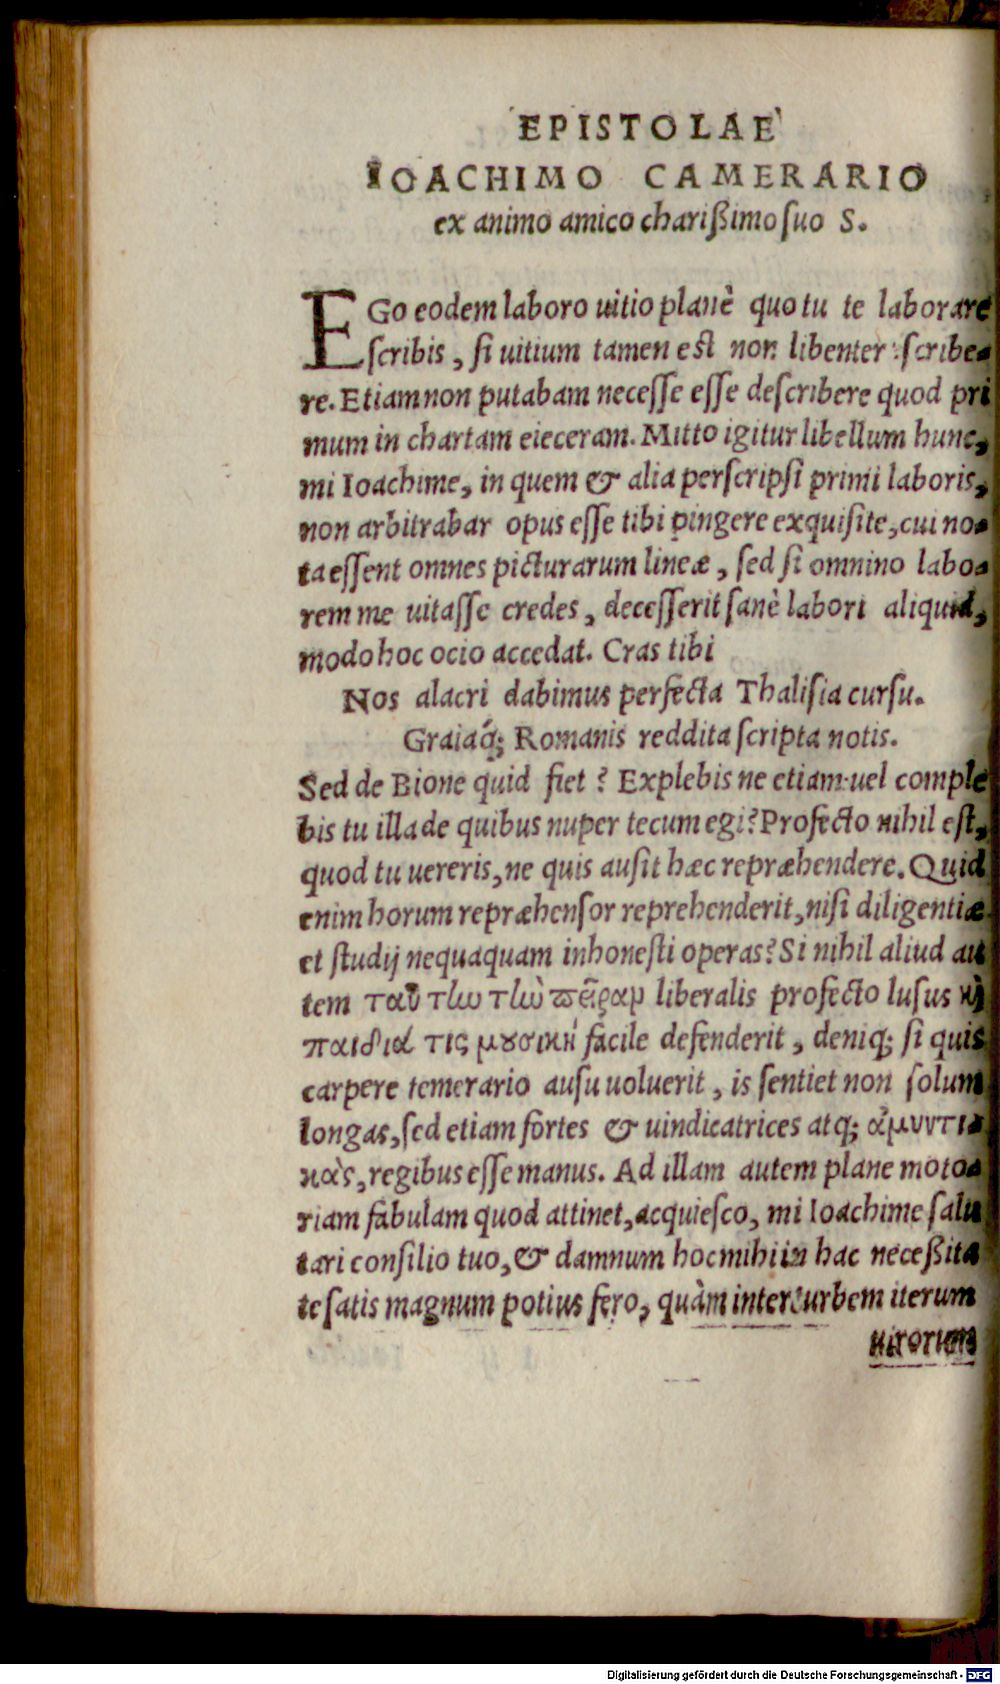 EPISTOLAE
IOACHIMO CAMERARIO
ex animo amico charißimo suo S.
EGo eodem laboro uitio planè quo tu te laborare
ſcribis, ſi uitium tamen eſt non libenter ſcribe-
re. Etiam non putabam neceſſe eſſe deſcribere quod pri
mum in chartam eieceram. Mitto igitur libellum hunc,
mi Ioachime, in quem & alia perſcripſi primi laboris,
non arbitrabar opus eſſe tibi pingere exquiſite, cui no-
ta eſſent omnes picturarum lineæ, ſed ſi omnino labo-
rem me uitaſſe credes, deceſſerit ſanè labori aliquid,
modo hoc ocio accedat. Cras tibi
Nos alacri dabimus perfecta Thaliſia curſu.
Graiaq́; Romanis reddita ſcripta notis.
Sed de Bione quid fiet? Explebis ne etiam uel comple
bis tu illa de quibus nuper tecum egi? Profecto nihil eſt,
quod tu uereris, ne quis auſit hæc repræhendere. Quid
enim horum repræhenſor reprehenderit, niſi diligentiæ
et ſtudij nequaquam inhoneſti operas? Si nihil aliud au
tem ταύτlω τlὼ πεῖραμ liberalis profecto luſus κὶ
παιδιά τις μȣσικὴ facile defenderit, deniq; ſi quis
carpere temerario auſu uoluerit, is ſentiet non ſolum
longas, ſed etiam fortes & uindicatrices atq; ἀμυντι-
κὰς, regibus eſſe manus. Ad illam autem plane moto-
riam fabulam quod attinet, acquieſco, mi Ioachime ſalu
tari conſilio tuo, & damnum hoc mihi in hac neceßita
te ſatis magnum potius fero, quàm inter turbem iterum
uirorum
Digitalisierung gefördert durch die Deutsche Forschungsgemeinschaft - DFG